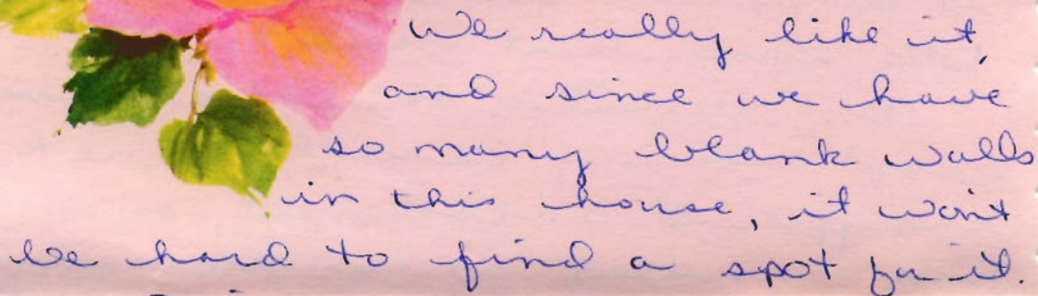 We really like it,
and since we have
so many blank walls
in this house, it won't
be hard to find a spot for it.